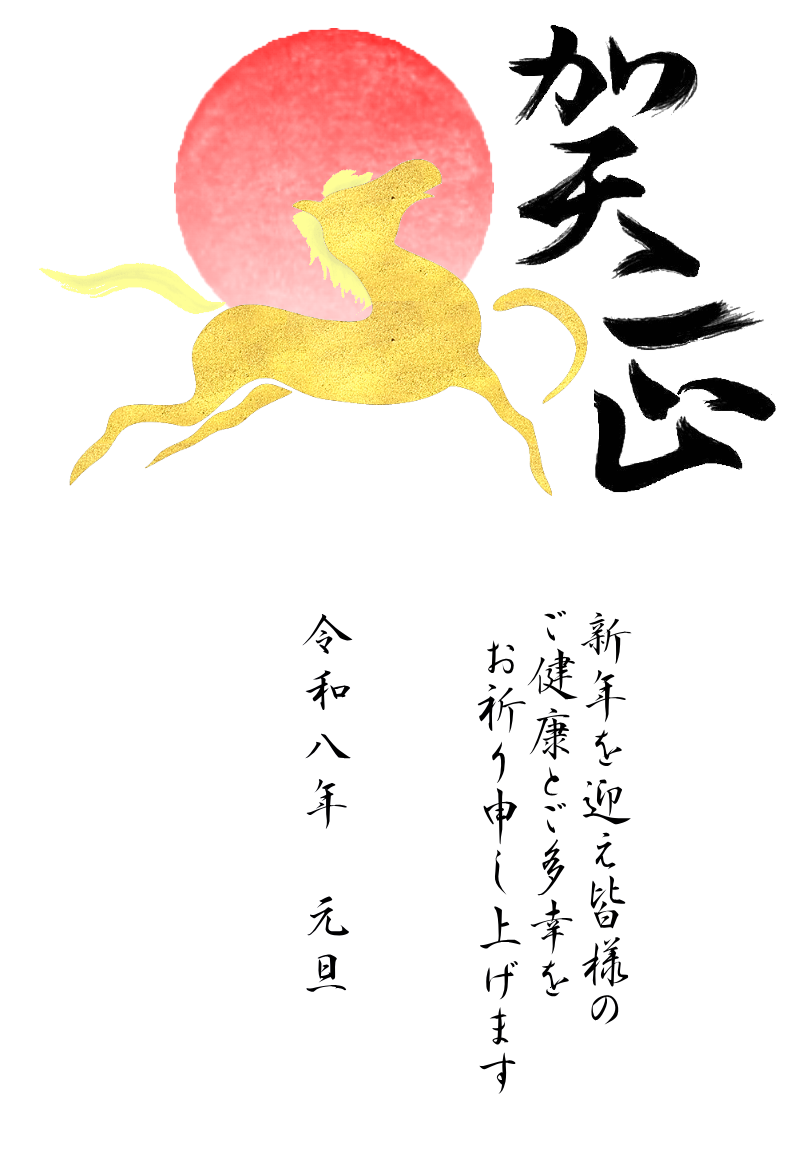 賀正
新年を迎え皆様の
ご健康とご多幸を
お祈り申し上げます
令和八年　元旦